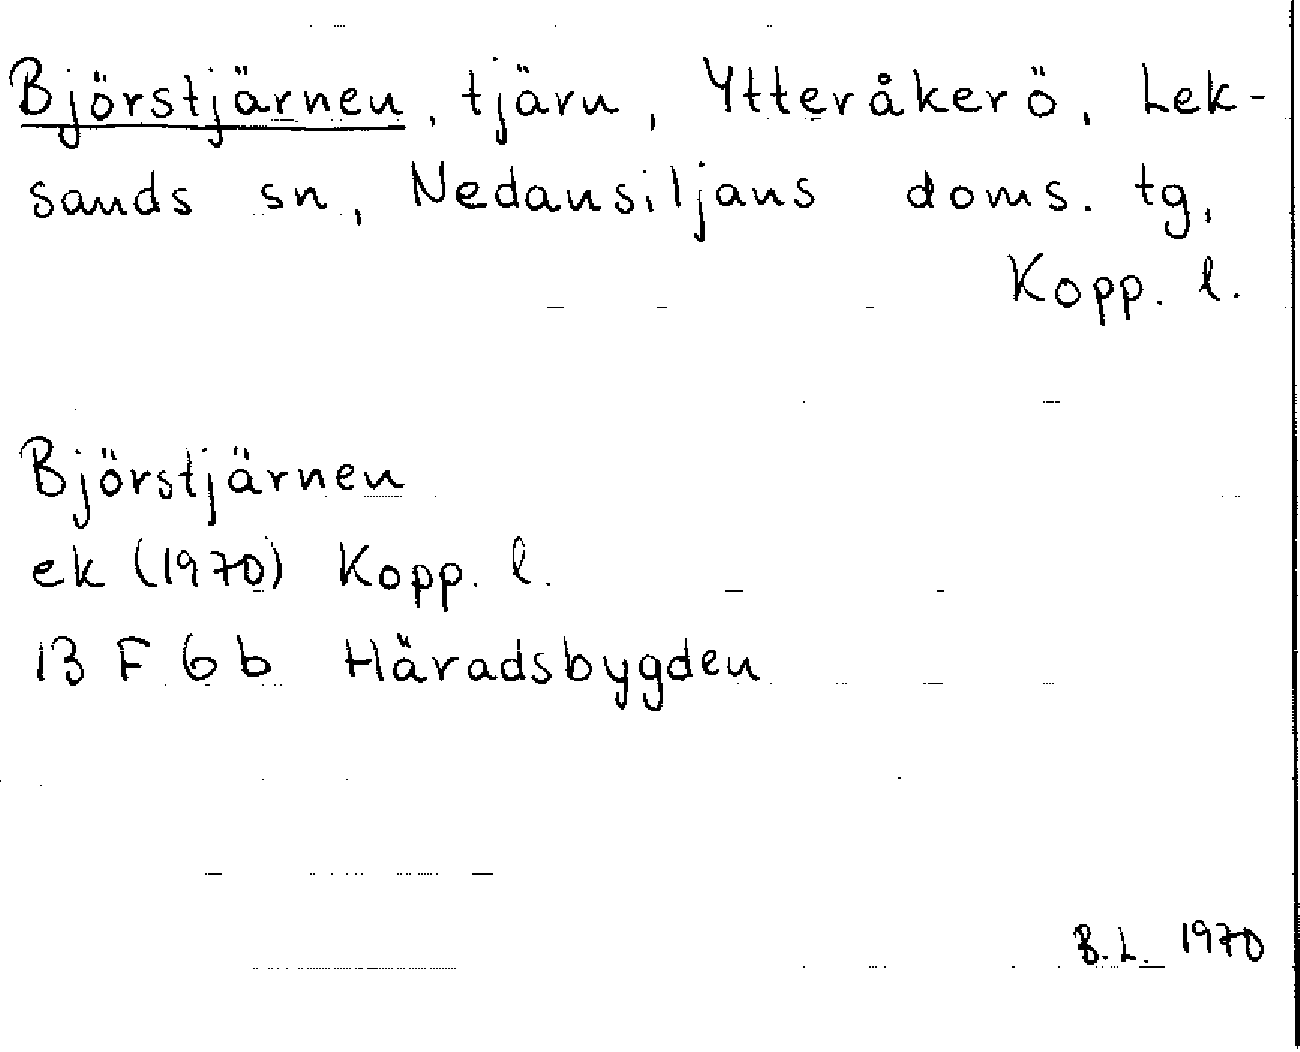 Björstjärnen, tjärn, Ytteråkerö, Lek-
sands sn, Nedansiljans doms. tg,
Kopp. l.
Björstjärnen
ek (1970) Kopp. l.
13 F 6 b Häradsbygden
B.L. 1970